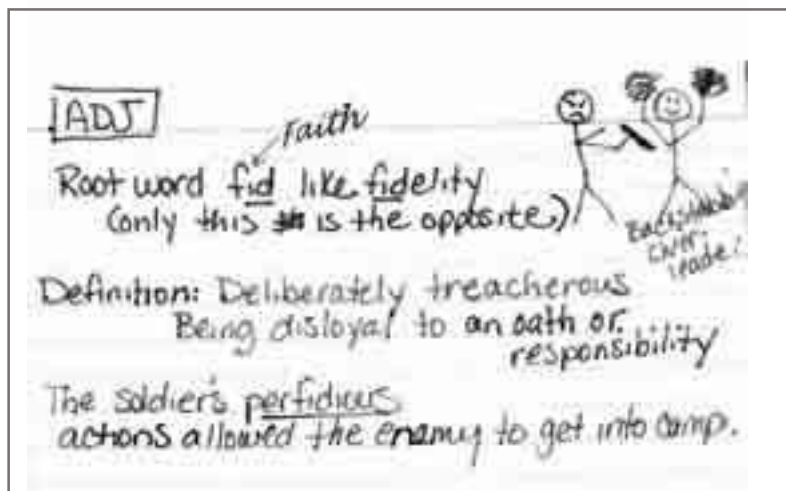 ADJ
Faith
Root word fid like fidelity
(only this is the opposite)
Backstabbing
cheer-
leader!
Definition: Deliberately treacherous
Being disloyal to an oath or
responsibility
The soldier's perfidious
actions allowed the enemy to get into camp.